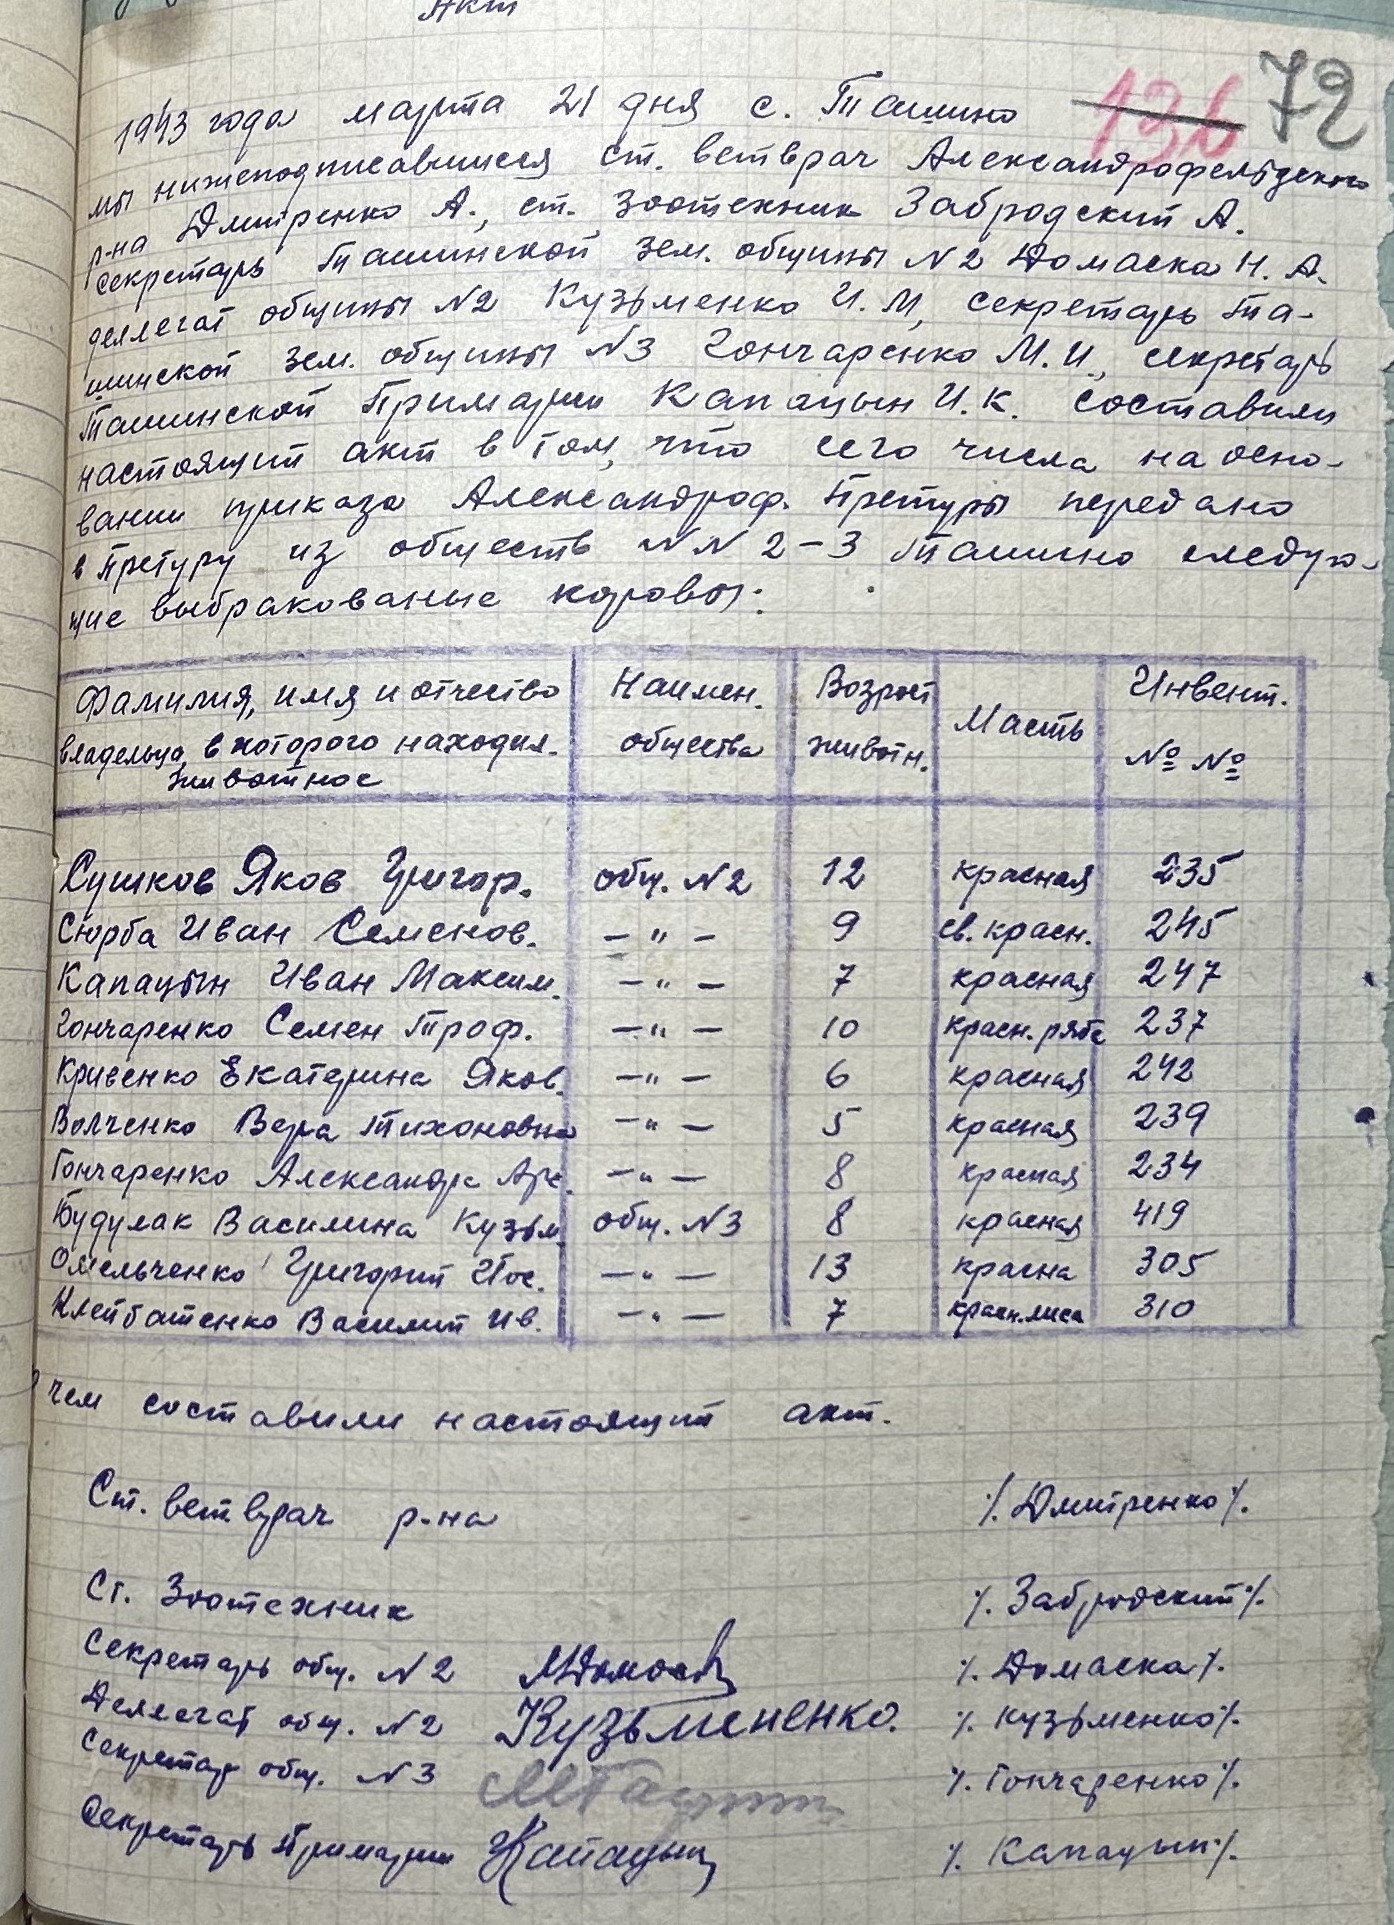 Акт
136 72
1943 года марта 21 дня с. Ташино
мы нижеподписавшиеся ст. ветврач Александрофельдского
р-на Дмитренко А., ст. Зоотехник Забродский А.
секретарь Ташинской зем. общины №2 Домаска Н. А.
деллегат общины №2 Кузьменко И. М, секретарь Та-
шинской зем. общины №3 Гончаренко М. И., секретарь
Ташинской Примарии Капацын И. К. составили
настоящий акт в том, что сего числа на осно-
вании приказа Александроф. Претуры передано
в Претуру из обществ №№ 2-3 Ташино следую-
щие выбракованые коровы:
Фамилия, имя и отчество владельца, в которого находил. животное | Наимен. общества | Возрост животн. | Масть | Инвент. №№
Сушков Яков Григор. общ. №2 12 красная 235
Сюрба Иван Семенов. —"— 9 св. красн. 245
Капацын Иван Максим. —"— 7 красная 247
Гончаренко Семен Троф. —"— 10 красн. ряба 237
Кривенко Екатерина Яков. —"— 6 красная 242
Волченко Вера Тихоновна —"— 5 красная 239
Гончаренко Александра —"— 8 красная 234
Будулак Василина Кузьм. общ. №3 8 красная 419
Омельченко Григорий Иос. —"— 13 красна 305
Клейбатенко Василий Ив. —"— 7 красн. лиса 310
О чем составили настоящий акт.
Ст. ветврач р-на /. Дмитренко /.
Ст. Зоотехник /. Забродский /.
Секретарь общ. №2 /. Домаска /.
Деллегат общ. №2 Кузьмененко. /. Кузьменко /.
Секретар общ. №3 /. Гончаренко /.
Секретарь Примарии Капацын /. Капацын /.